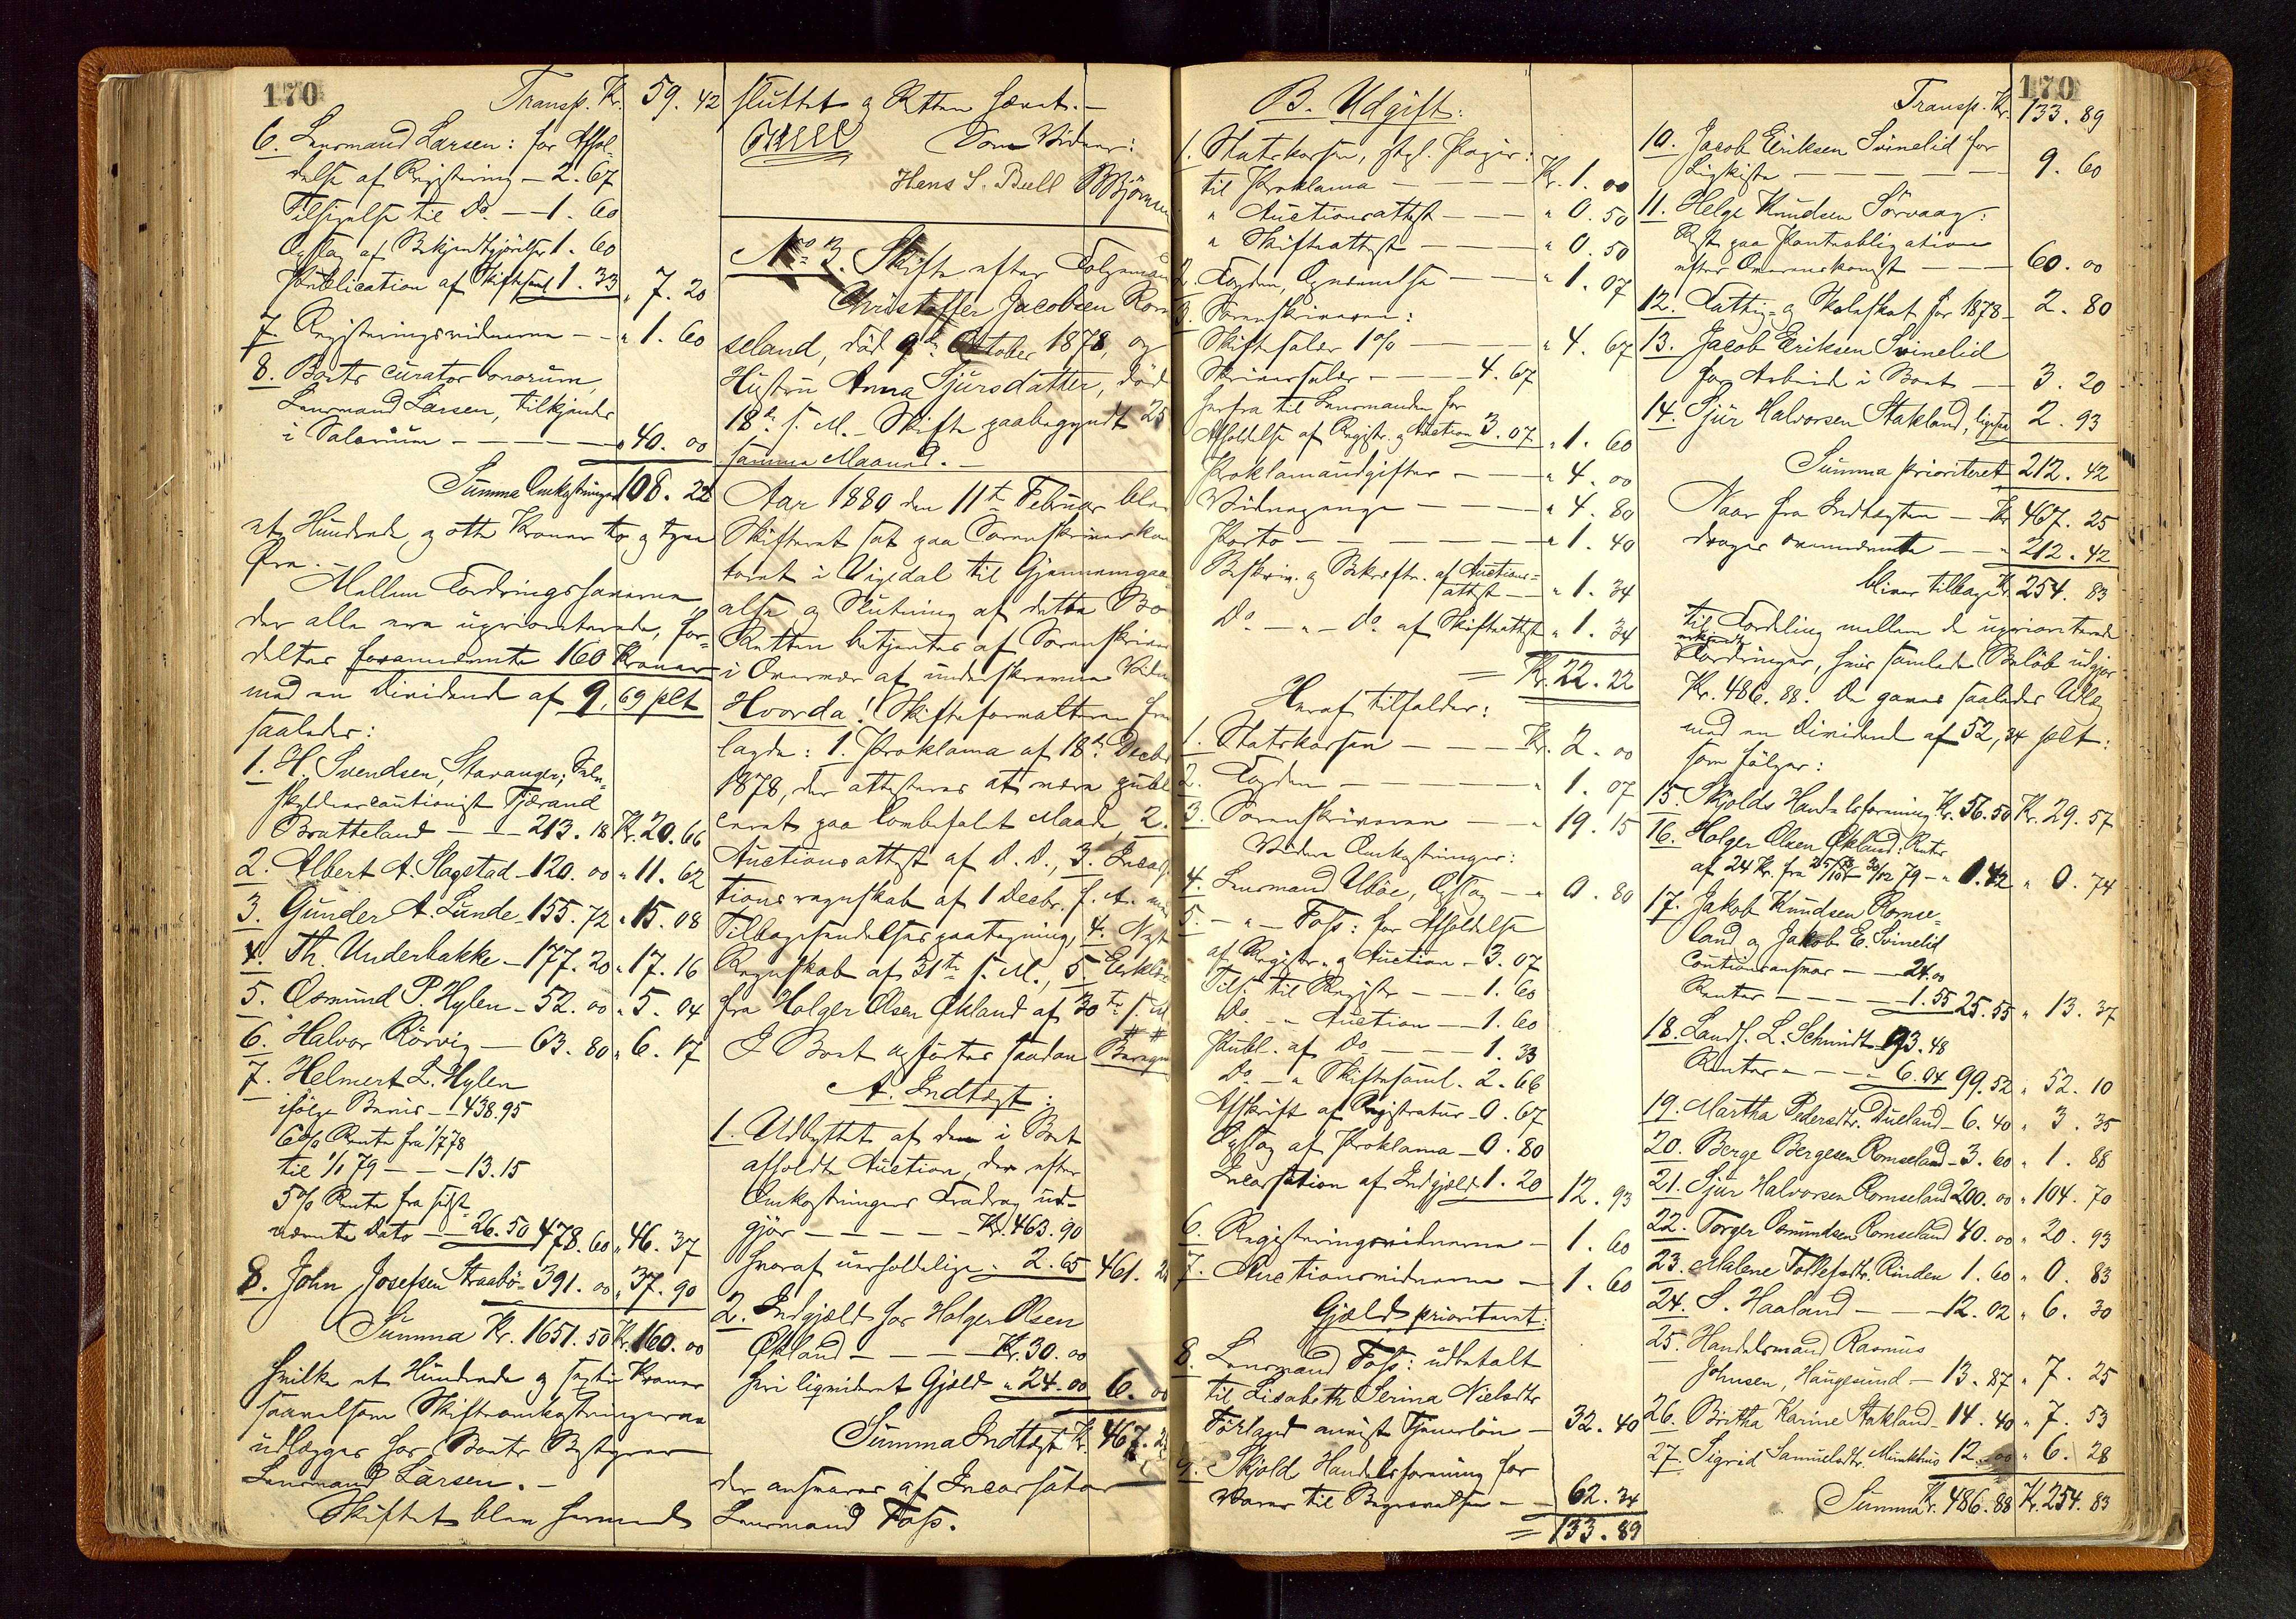 170
Transp. Kr. 59. 42
6. Lensmand Larsen: for Afhol-
delse af Registrering - 2. 67
Tilsigelse til Do. - 1. 60
Opslag af Bekjendtgjörelser 1. 60
Publication af Skiftesaml. 1. 33 " 7. 20
7. Registreringsvidnerne - " 1. 60
8. Boets curator bonorum,
Lensmand Larsen, tilkjendes
i Salarium - - - " 40. 00
Summa Omkostninger 108. 22
et Hundrede og otte Kroner to og tyve
Øre. -
Mellem Fordringshaverne,
der alle ere uprioriterede, for-
deltes forannævnte 160 Kroner
med en Dividende af 9,69 pCt
saaledes:
1. H. Svendsen, Stavanger, Selv-
skyldnercautionist Tjerand
Bratteland - - 213. 18 Kr. 20. 66
2. Albert A. Slagstad - 120. 00 " 11. 62
3. Gunder A. Lunde - 155. 72 " 15. 08
4. Th. Underbakke - 177. 20 " 17. 16
5. Osmund P. Hylen - 52. 00 " 5. 04
6. Halvor Rörvig - 63. 80 " 6. 17
7. Helmert L. Hylen
ifölge Bevis - 438.95
6% Rente fra 1/7 78
til 1/1 79 - - - 13.15
5% Rente fra sidst-
nævnte Dato - 26.50 478. 60 " 46. 37
8. John Josefsen Straabö - 391. 00 " 37. 90
Summa Kr. 1651. 50 Kr. 160. 00
hvilke et Hundrede og sexti Kroner
saavelsom Skifteomkostningerne
udlægges for Boets Bestyrer
Lensmand Larsen. -
Skiftet blev hermed
sluttet og Retten hævet. -
Bull Som Vidner:
Hans S. Bull BBjörnsen
No 3. Skifte efter Folgemand
Christoffer Jacobsen Rom-
seland, död 9de October 1878, og
Hustru Anna Sjursdatter, död
18de s. M. - Skifte paabegyndt 25
samme Maaned. -
Aar 1880 den 11te Februar blev
Skifteret sat paa Sorenskriverkon-
toret i Vigedal til Gjennemgaa-
else og Slutning af dette Bo
Retten betjentes af Sorenskriver
i Overvær af underskrevne Vidner
Hvorda! Skifteforvalteren frem
lagde: 1. Proklama af 18de Decbr
1878, der attesteres at være publi
ceret paa lovbefalet Maade, 2.
Auctionsattest af D. D., 3. Incassa-
tionsregnskab af 1 Decbr. f. A. med
Tilbagesendelsespaategning, 4. Nyt
Regnskab af 31te s. M., 5. Erklær
fra Holger Olsen Økland af 30te s. M
I Boet opförtes saadan Beregn
A. Indtægt:
1. Udbyttet af den i Boet
afholdte Auction, der efter
Omkostningers Fradrag ud-
gjör - - - Kr. 463. 90
hvoraf uerholdelige " 2. 65 461. 25
2. Indgjæld hos Holger Olsen
Økland - - - Kr. 30. 00
heri liquideret Gjæld " 24. 00 6. 00
Summa Indtægt Kr. 467. 25
der ansvares af Incassator
Lensmand Foss.
B. Udgift:
1. Statskassen, stpl. Papir:
til Proklama - - - Kr. 1. 00
" Auctionsattest - - - " 0. 50
" Skifteattest - - - " 0. 50
2. Fogden, Opnævnelse - - " 1. 07
3. Sorenskriveren:
Skiftesalær 1% - - - " 4. 67
Skriversalær - - - 4. 67
herfra til Lensmanden for
Afholdelse af Registr. og Auction 3. 07 " 1. 60
Proklamaudgifter - - " 4. 00
Vidnepenge - - - " 4. 80
Porto - - - " 1. 40
Beskriv. og Bekræftn. af Auctions-
attest - " 1. 34
Do - " - Do af Skifteattest " 1. 34
= Kr. 22. 22
Heraf tilfalder:
1. Statskassen - - - Kr. 2. 00
2. Fogden - - - " 1. 07
3. Sorenskriveren - - " 19. 15
Videre Omkostninger:
4. Lensmand Ubøe, Opslag - " 0. 80
5. - " - Foss: for Afholdelse
af Registr. og Auction - 3. 07
Tils. til Registr - - 1. 60
Do - - Auction - - 1. 60
Publ. af Do - - - 1. 33
Do - " Skiftesaml. 2. 66
Afskrift af Registratur - 0. 67
Opslag af Proklama - 0. 80
Incassation af Indgjæld 1. 20 12. 93
6. Registreringsvidnerne - 1. 60
7. Auctionsvidnerne - 1. 60
Gjæld prioriteret:
8. Lensmand Foss: udbetalt
til Lisabeth Serina Nielsdtr
Förland anvist Tjenerlön - 32. 40
9. Skjold Handelsforening for
Varer til Begravelsen - 62. 34
= 133. 89
170
Transp. Kr. 133. 89
10. Jacob Eriksen Svinelid for
Ligkiste - - - 9. 60
11. Helge Knudsen Sörvaag:
Rest paa Pantobligation
efter Overenskomst - - 60. 00
12. Fattig- og Skoleskat for 1878 - 2. 80
13. Jacob Eriksen Svinelid
for Arbeide i Boet - - 3. 20
14. Sjur Halvorsen Stakland, ligesaa 2. 93
Summa prioriteret 212. 42
Naar fra Indtægten - Kr 467. 25
drages ovennævnte - - " 212. 42
bliver tilbage Kr. 254. 83
til Fordeling mellem de uprioriterede
Fordringer, hvis samlede Beløb udgjør
Kr. 486. 88. De gives saaledes Udlæg
med en Dividende af 52,34 pCt:
som fölger:
15. Skjolds Handelsforening Kr. 56. 50 Kr. 29. 57
16. Holger Olsen Økland: Rente
af 24 Kr. fra 25/10 78 - 30/12 79 - " 1.42 " 0. 74
17. Jakob Knudsen Romse-
land og Jakob E. Svinelid
Cautionsansvar - - 24.00
Renter - - - 1.55 25.55 " 13. 37
18. Landh. L. Schmidt 93. 48
Renter - - - 6.04 99.52 " 52. 10
19. Martha Pedersdtr. Dueland - 6. 40 " 3. 35
20. Berge Bergesen Romseland - 3. 60 " 1. 88
21. Sjur Halvorsen Romseland 200. 00 " 104. 70
22. Torger Osmundsen Romseland 40. 00 " 20. 93
23. Malene Tollefsdtr. Rinden 1. 60 " 0. 83
24. S. Haaland - - - 12. 02 " 6. 30
25. Handelsmand Rasmus
Johnsen, Haugesund - 13. 87 " 7. 25
26. Britha Karine Stakland - 14. 40 " 7. 53
27. Sigrid Samuelsdtr. Munkhus 12. 00 " 6. 28
Summa Kr. 486. 88 Kr. 254. 83